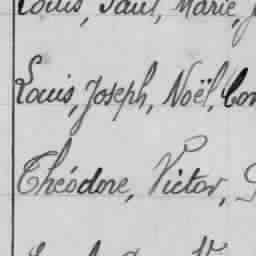 Louis, Paul, Marie,
Louis, Joseph, Noël,
Théodore, Victor,